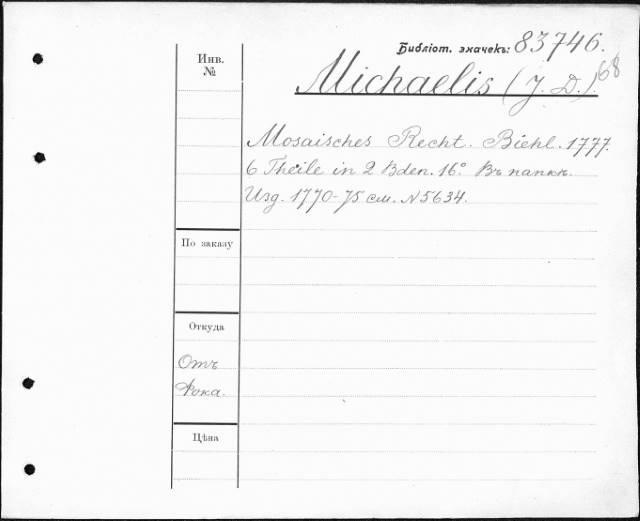 Библіот. значекъ: 83746.
68
Инв.
№
Michaelis (J. D.).
Mosaisches Recht. Biehl. 1777.
6 Theile in 2 Bden. 16°. Въ папкѣ.
Изд. 1770-75 см. N 5634.
По заказу
Откуда
Отъ
Фока.
Цѣна